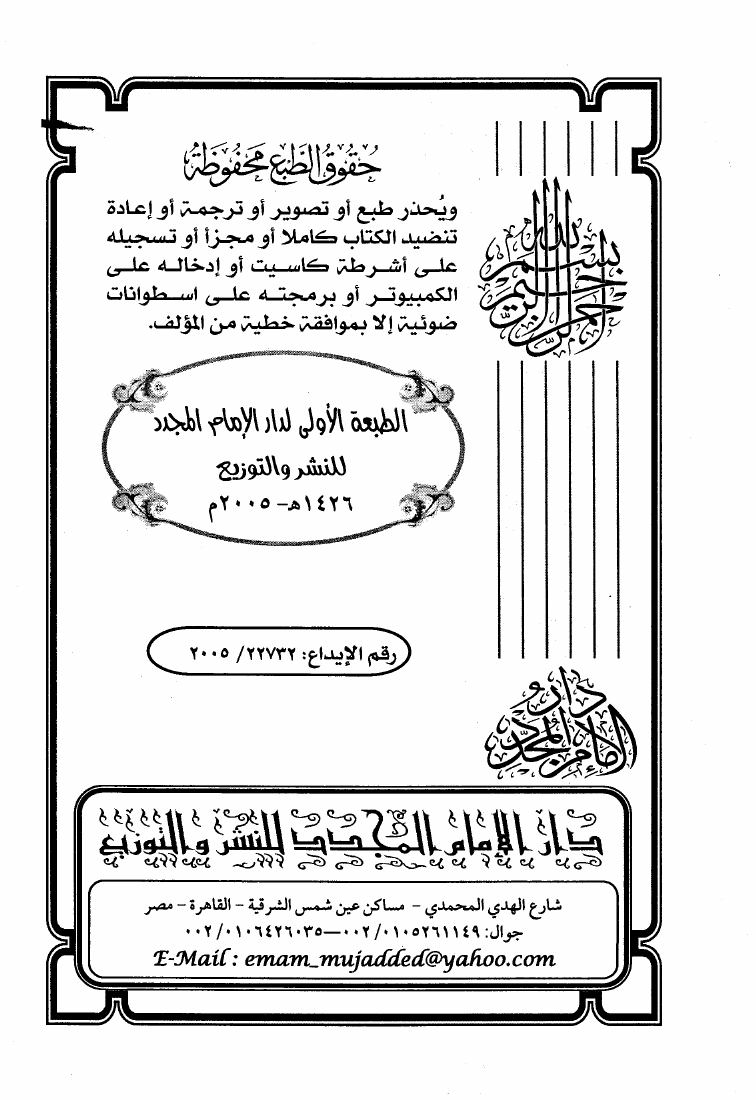 حقوق الطبع محفوظة
ويُحذر طبع أو تصوير أو ترجمة أو إعادة
تنضيد الكتاب كاملا أو مجزأ أو تسجيله
على أشرطة كاسيت أو إدخاله على
الكمبيوتر أو برمجته على اسطوانات
ضوئية إلا بموافقة خطية من المؤلف.
بسم الله الرحمن الرحيم
الطبعة الأولى لدار الإمام المجدد
للنشر والتوزيع
١٤٢٦هـ-٢٠٠٥م
رقم الإيداع: ٢٢٧٣٢/ ٢٠٠٥
دار
الإمام المجدد
دار الإمام المجدد للنشر والتوزيع
شارع الهدي المحمدي - مساكن عين شمس الشرقية - القاهرة - مصر
جوال: ٠٠٢/٠١٠٥٢٦١١٤٩—٠٠٢/٠١٠٦٤٢٦٠٣٥
E-Mail : emam_mujadded@yahoo.com